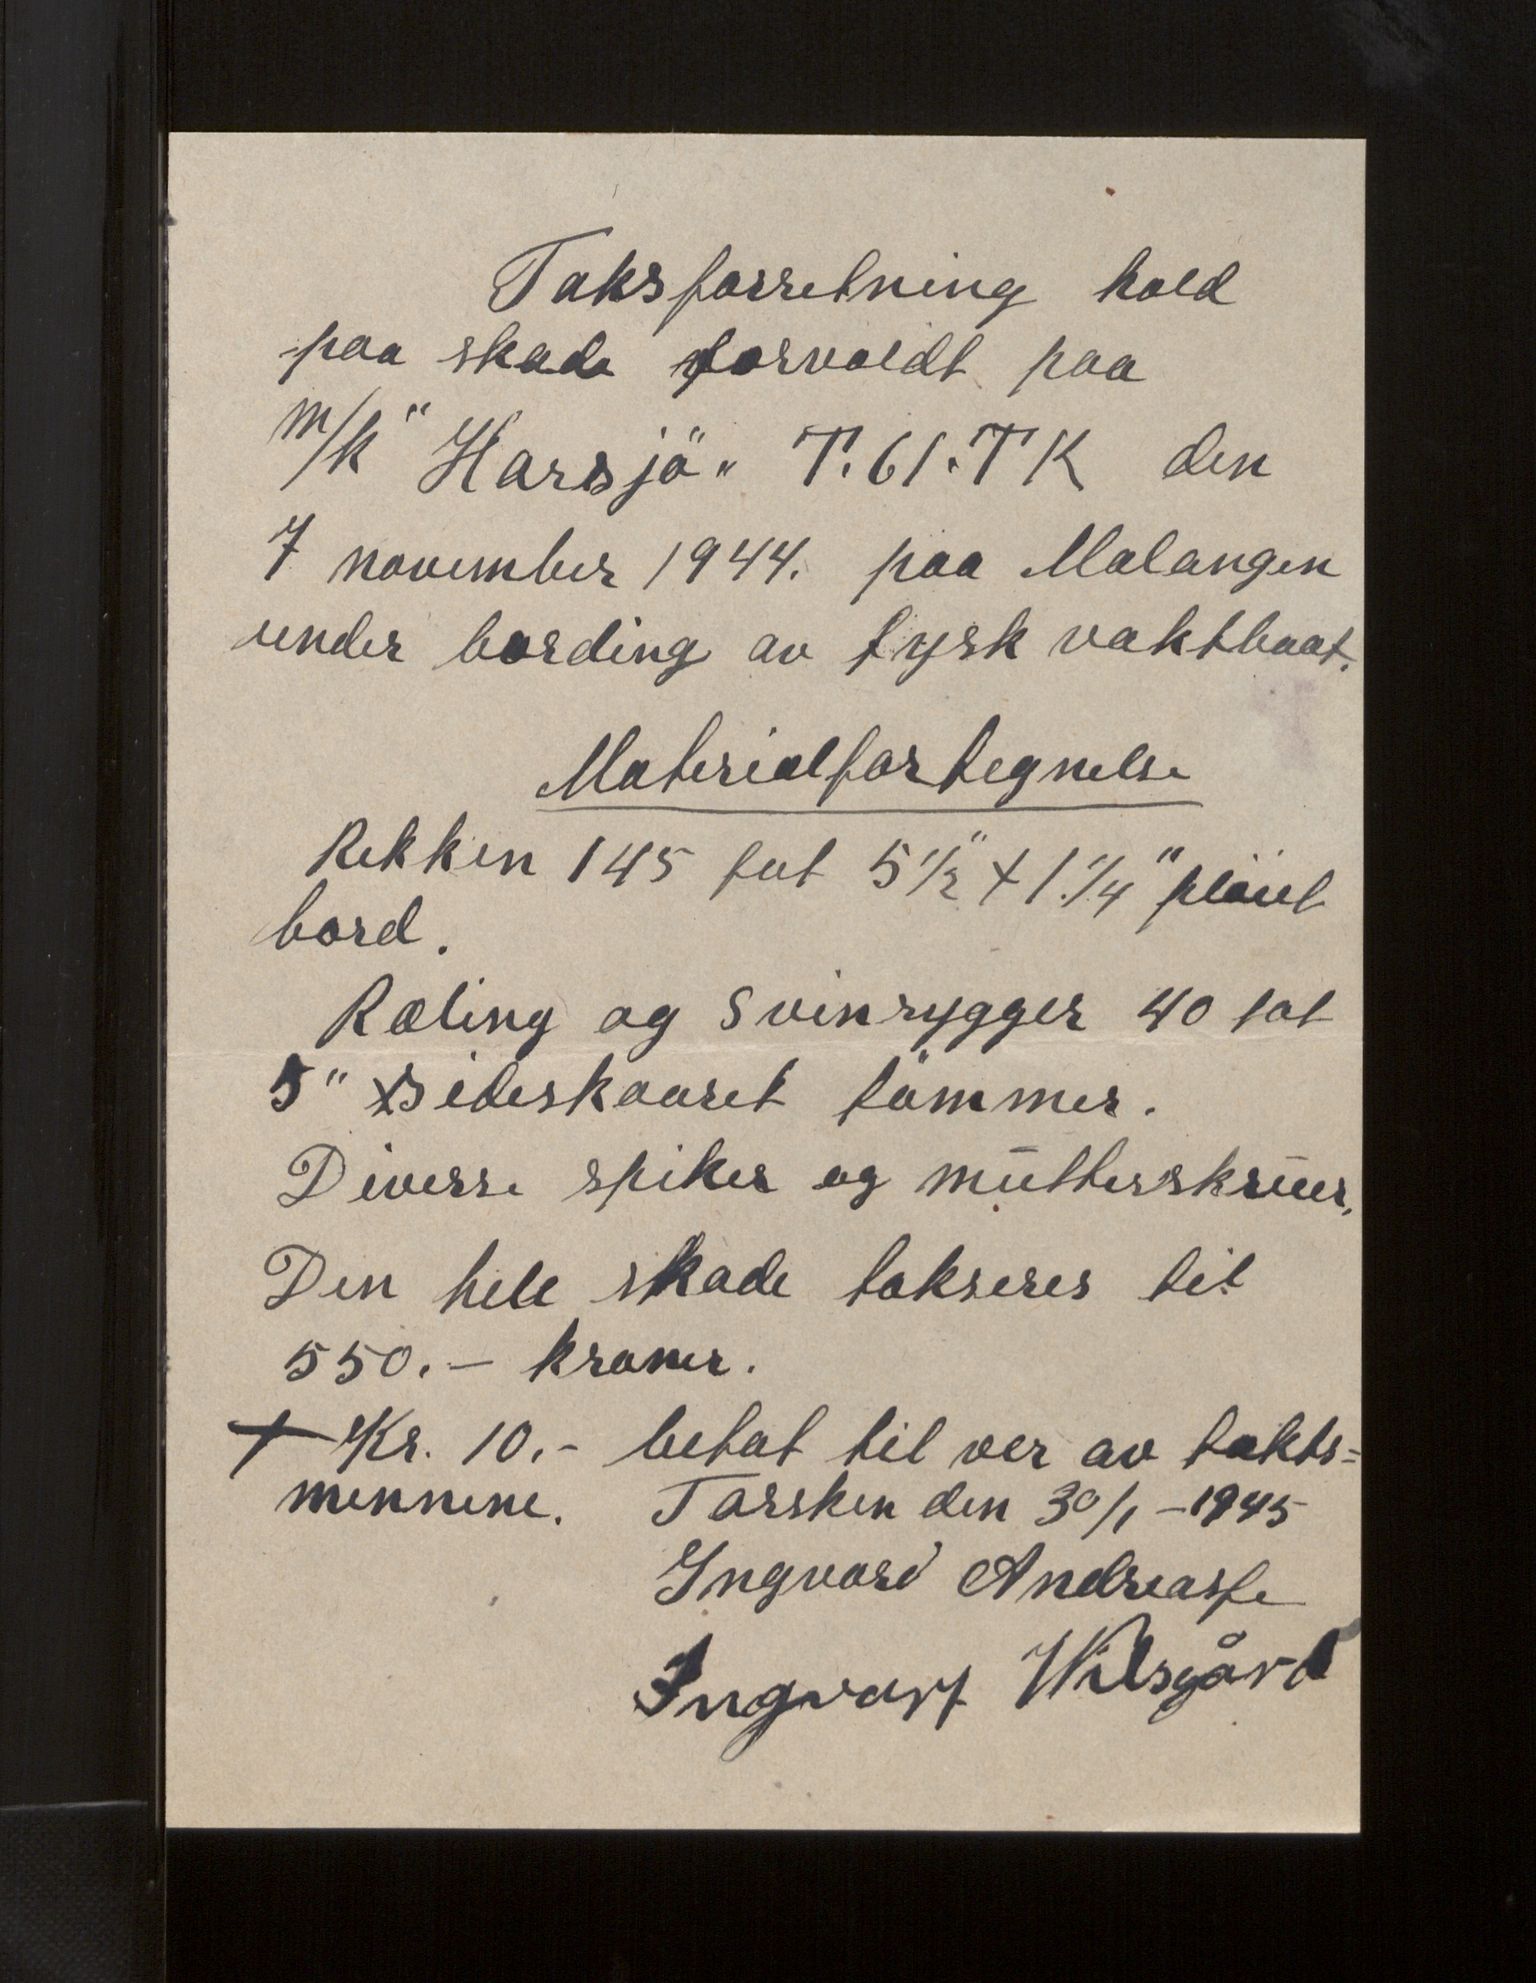 Taksforretning hold
paa skade forvoldt paa
m/k "Harsjö" T.61.TK den
7 november 1944. paa Malangen
under bording av tysk vaktbaat.
Materialfortegnelse
Rekken 145 fot 5 1/2" + 1 1/4" plöiet
bord.
Ræling og Svinrygger 40 fot
5" sideskaaret tömmer.
Diverse spiker og mutterskruer.
Den hele skade takseres til
550.- kroner.
+ Kr. 10.- betalt til ver av takts=
mennene. Torsken den 30/1 -1945
Ingvard Andreasse
Ingvart Wilsgård